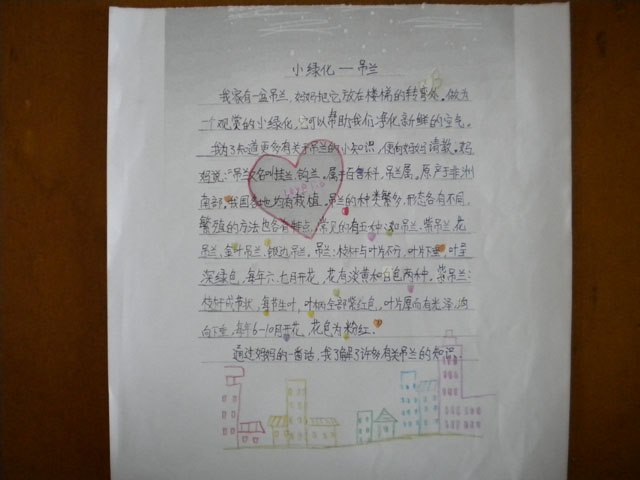 小绿化一吊兰
我家有一盆吊兰，妈妈把它放在楼梯的转弯处。做为
一个观赏的小绿化，它可以帮助我们净化新鲜的空气。
我为了知道更多有关于吊兰的小知识，便向妈妈请教。妈
妈说："吊兰又名叫挂兰、钩兰。属于百合科，吊兰属。原产于非洲
南部。我国各地均有栽植。吊兰的种类繁多，形态各有不同，
繁殖的方法也各有特点。常见的有五种：如吊兰、紫吊兰、花
吊兰、金叶吊兰、银边吊兰。吊兰：枝杆与叶片不分，叶片下垂，叶呈
深绿色，每年六、七月开花，花有淡黄和白色两种。紫吊兰：
枝杆成节状，每节生叶，叶柄全部紫红色，叶片厚而有光泽，
向下垂，每年6-10月开花，花色为粉红。
通过妈妈的一番话，我了解了许多有关吊兰的知识。